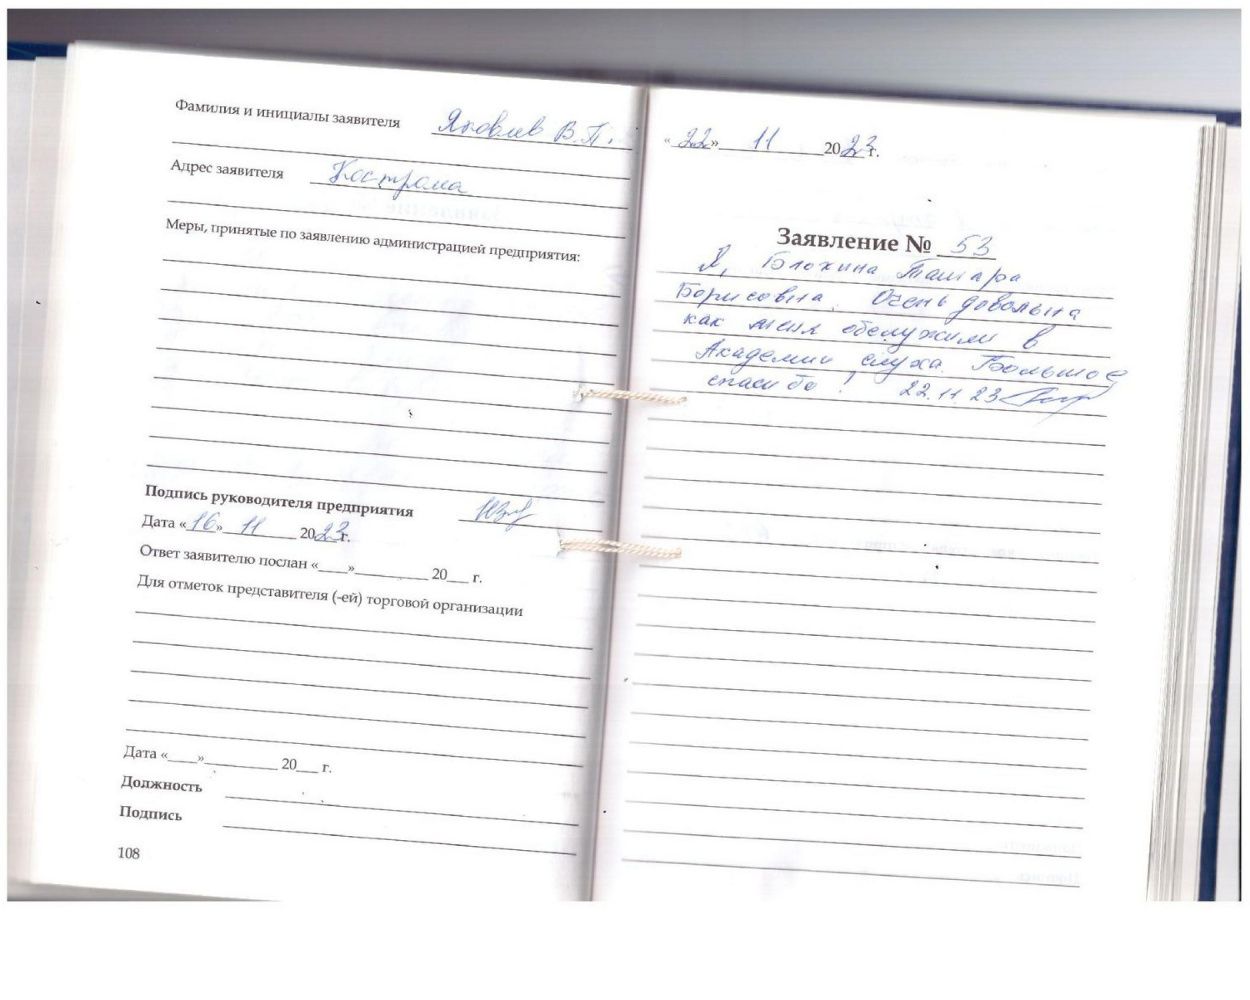 Фамилия и инициалы заявителя Яковлев В.П.
Адрес заявителя Кострома
Меры, принятые по заявлению администрацией предприятия:
Подпись руководителя предприятия
Дата «16» 11 2023 г.
Ответ заявителю послан «____»__________ 20___ г.
Для отметок представителя (-ей) торговой организации
Дата «____»__________ 20___ г.
Должность
Подпись
108
«22» 11 2023 г.
Заявление № 53
Я, Блохина Тамара
Борисовна. Очень довольна
как меня обслужили в
Академии слуха. Большое
спасибо! 22.11 23